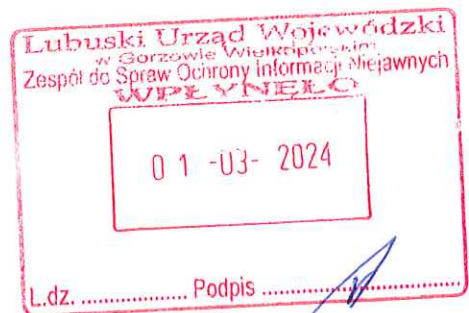 Lubuski Urząd Wojewódzki
w Gorzowie Wielkopolskim
Zespół do Spraw Ochrony Informacji Niejawnych
WPŁYNĘŁO
0 1 -03- 2024
L.dz. .................. Podpis ..................................